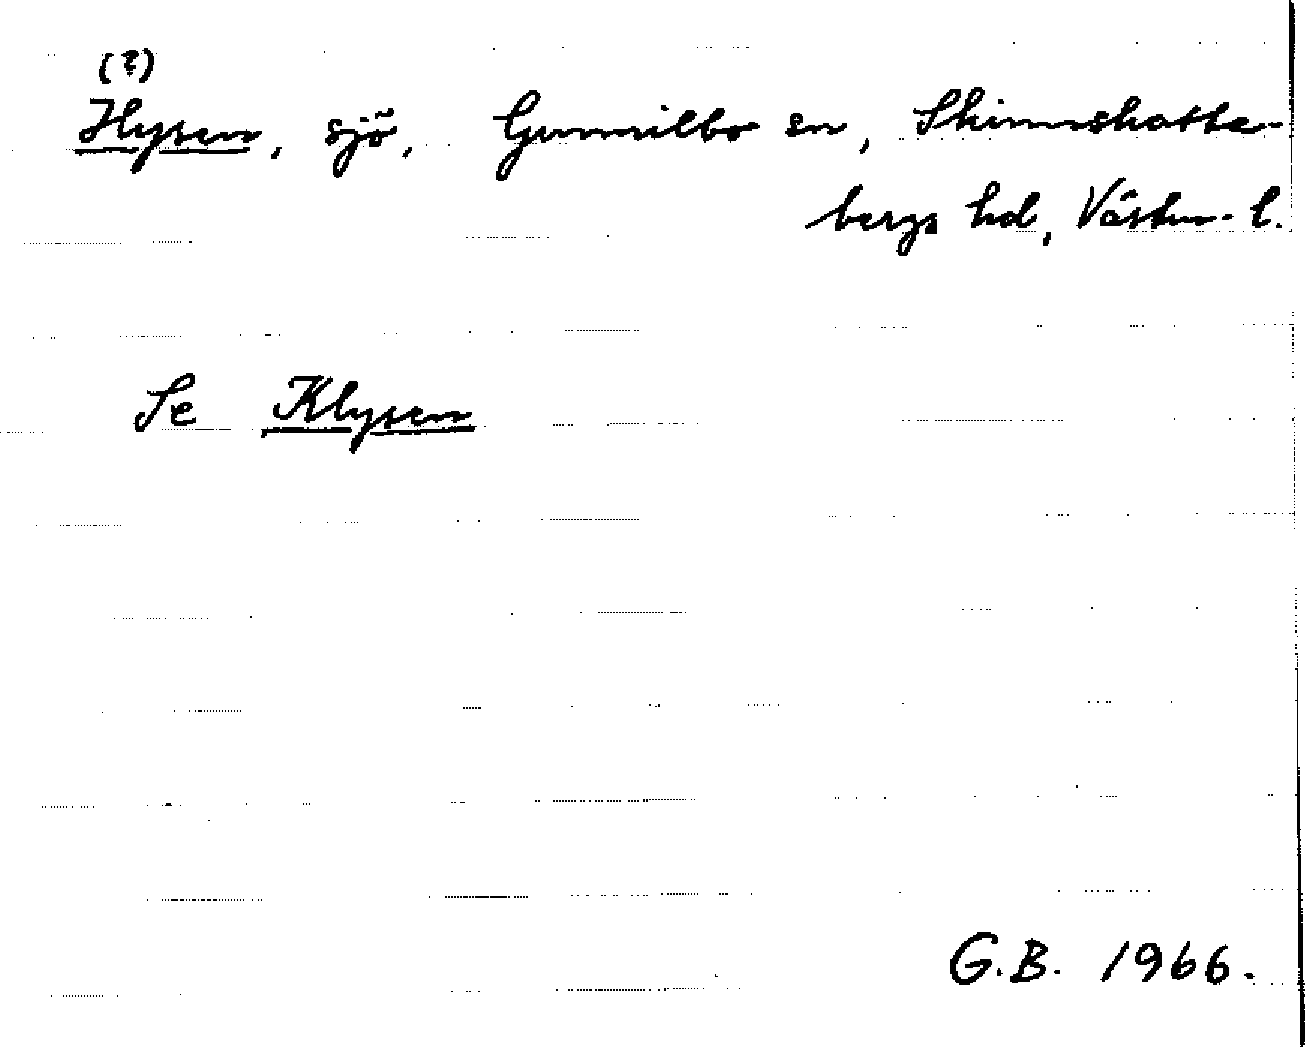 (?)
Hysen, sjö, Gunnilbo sn, Skinnskatte-
bergs hd, Västm. l.
Se Klysen
G.B. 1966.